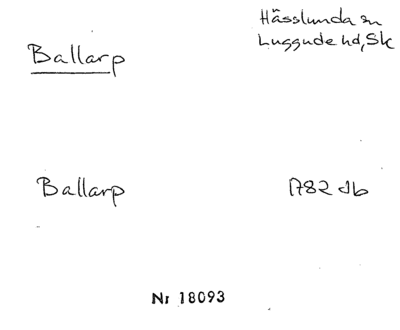 Hässlunda sn
Luggude hd, Sk
Ballarp
Ballarp
1782 db
Nr 18093